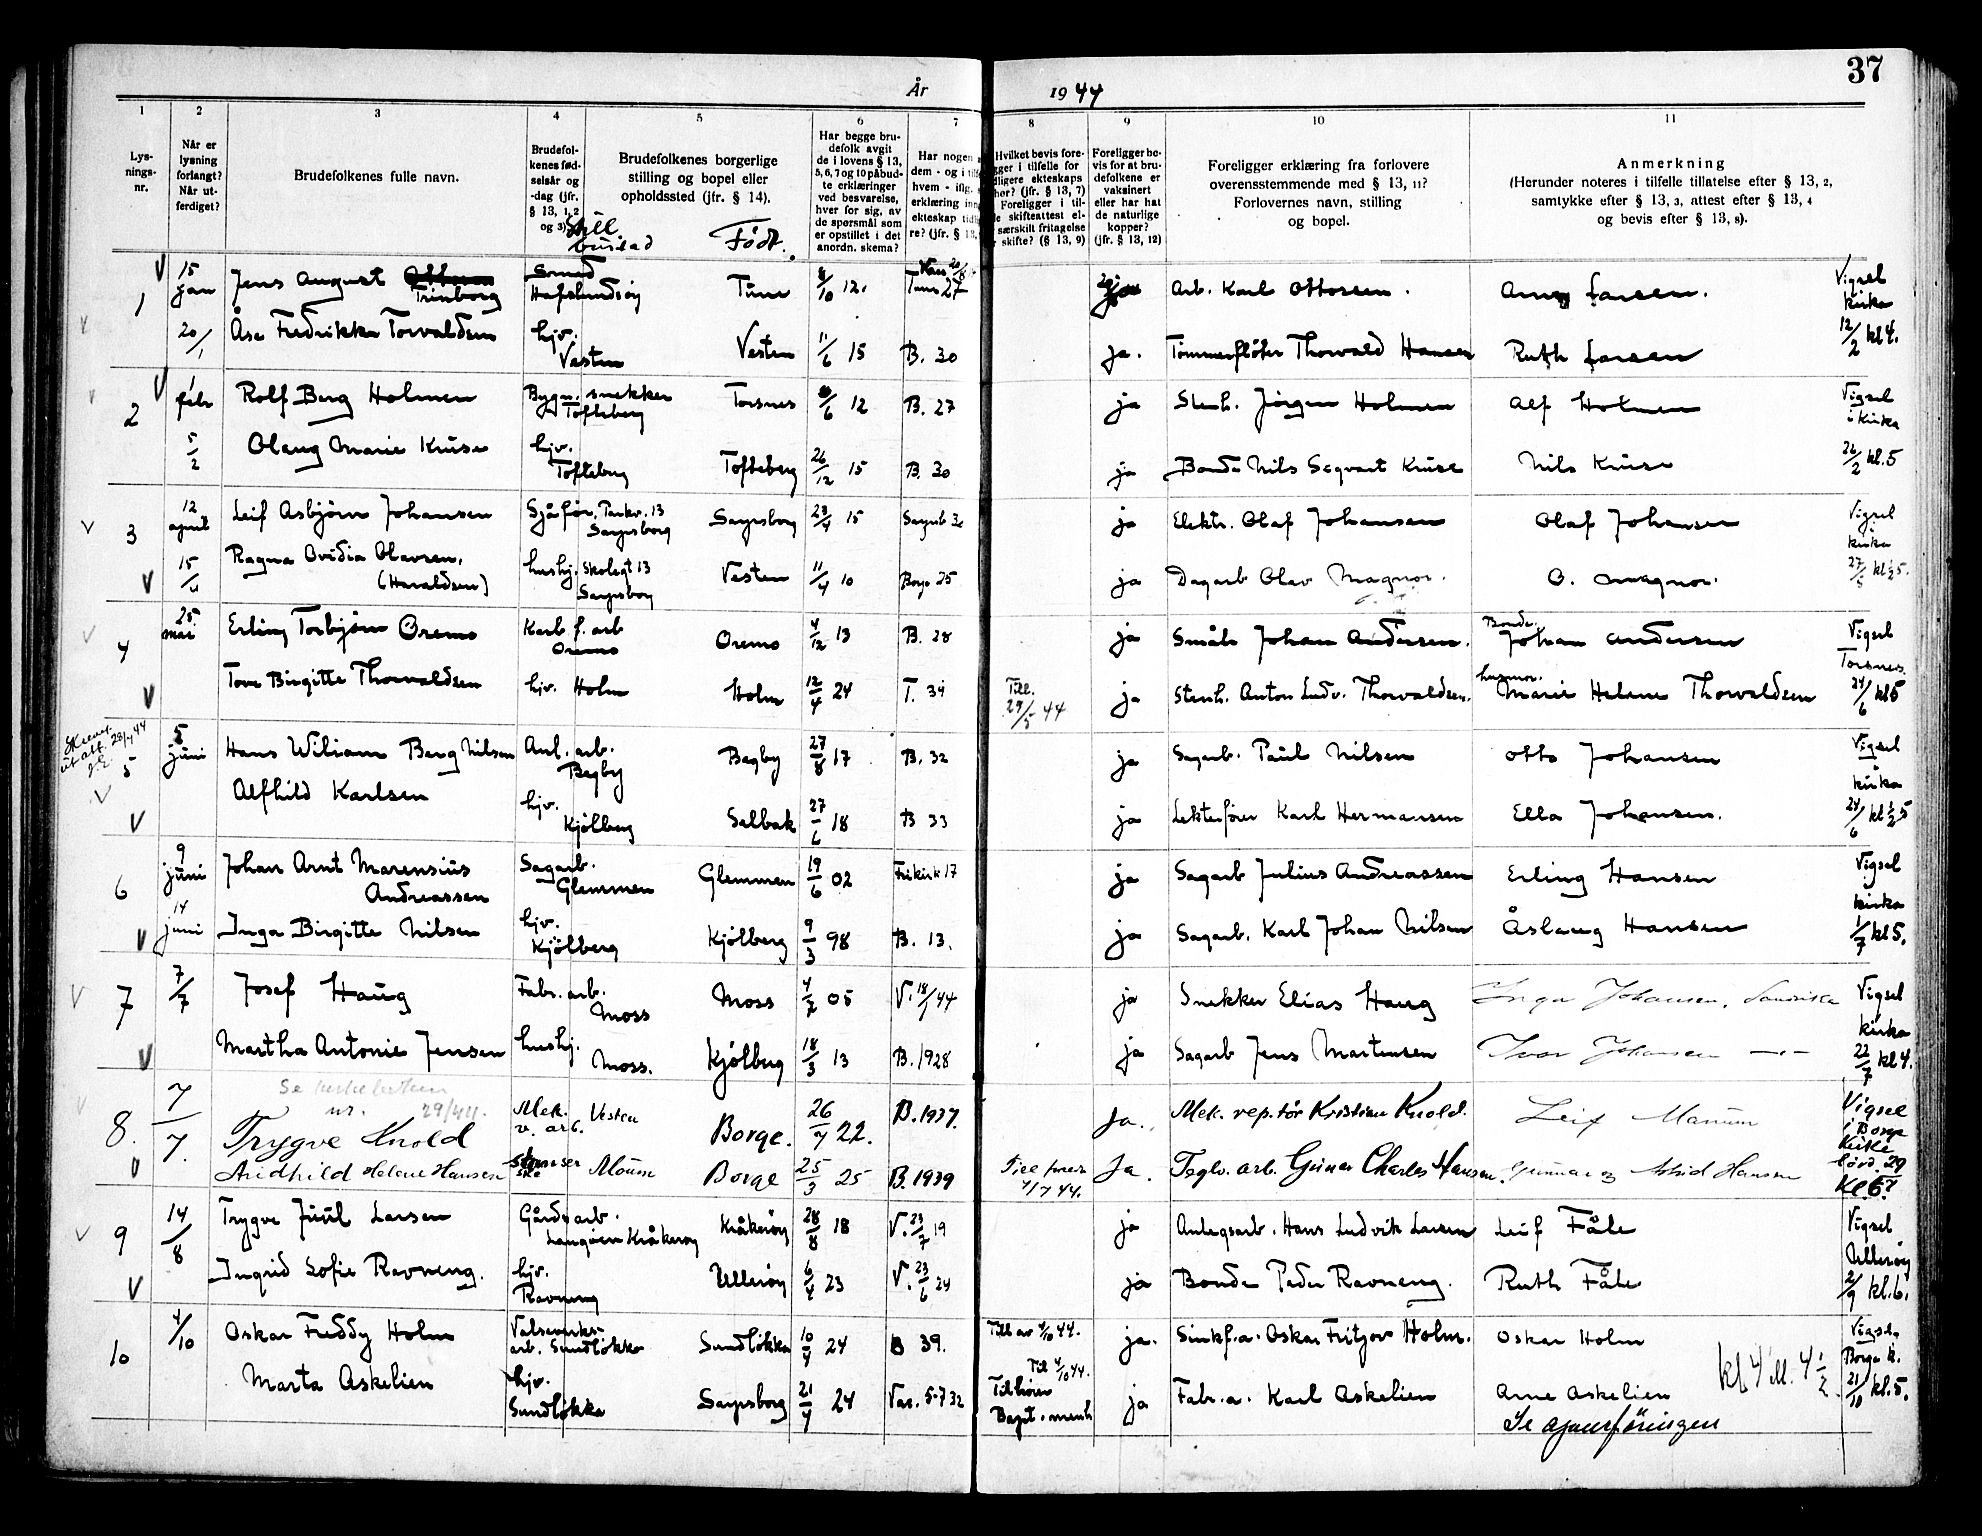 37
År 1944
1
2
3
4
5
6
7
8
9
10
11
Lys-
nings-
nr.
Når er
lysning
forlangt?
Når ut-
ferdiget?
Brudefolkenes fulle navn.
Brudefol-
kenes fød-
selsår og
-dag (jfr.
§ 13, 1, 2
og 3)
Brudefolkenes borgerlige
stilling og bopel eller
opholdssted (jfr. § 14).
Still.
bustad
Født.
Har begge bru-
defolk avgit
de i lovens § 13,
5, 6, 7 og 10 påbud-
te erklæringer
ved besvarelse,
hver for sig, av
de spørsmål som
er opstillet i det
anordn. skema?
Har nogen
dem - og i tilf
hvem - iflg.
erklæring inn
ekteskap tidli
re? (jfr. § 13,
Hvilket bevis fore-
gger i tilfelle for
dligere ekteskaps
hør? (jfr. § 13, 7)
Foreligger i til-
e skifteattest el-
særskilt fritagelse
skifte? (§ 13, 9)
Foreligger be-
vis for at bru-
defolkene er
vaksinert
eller har hat
de naturlige
kopper?
(jfr. § 13, 12)
Foreligger erklæring fra forlovere
overensstemmende med § 13, 11?
Forlovernes navn, stilling
og bopel.
Anmerkning
(Herunder noteres i tilfelle tillatelse efter § 13, 2,
samtykke efter § 13, 3, attest efter § 13, 4
og bevis efter § 13, 8).
1 15 jan Jens August Trinborg Smed Hafslundsøy Tune 8/10 12. Tune 27 Arb. Karl Ottosen. Arne Larsen. Vigsel kirka
20/1 Åse Fredrikke Torvaldsen hjv. Vesten Vesten 11/6 15 B. 30 ja. Tömmerflöter Thorvald Hansen Ruth Larsen 12/2 kl 4.
2 1 febr Rolf Berg Holmen Bygn. snekker Tofteberg Torsnes 8/6 12 B. 27 ja Stenh. Jörgen Holmen Alf Holmen Vigsel i kirka
5/2 Olaug Marie Kruse hjv. Tofteberg Tofteberg 26/12 15 B. 30 ja Bonde Nils Segvart Kruse Nils Kruse 26/2 kl. 5
3 12 april Leif Asbjörn Johansen Sjåfør, Parkv. 13 Sarpsborg Sarpsborg 23/4 15 Sarpsb 30 ja Elektr. Olaf Johansen Olaf Johansen Vigsel i kirka
15/4 Ragna Ovidia Olavsen. (Haraldsen) hushj. Skolegt 13 Sarpsborg Vesten 11/4 10 Borge 25 ja Dagarb Olav Magnor. O. Magnor. 27/5 kl ½ 5.
4 25 mai Erling Torbjörn Öremo Karb. f. arb Oremo Oremo 4/12 13 B. 28 ja Småb Johan Andersen. Bonde. Johan Andersen Vigsel Torsnes
Tove Birgitte Thorvaldsen hjv. Holm Holm 12/4 24 T. 34 Till. 29/5 44 ja Stenh. Anton Ludv. Thorvaldsen. husmor. Marie Helene Thorvaldsen 24/6 kl 5
5 5 juni Hans Wiliam Berg Nilsen Anl. arb. Begby Begby 27/8 17 B. 32 ja Sagarb. Paul Nilsen Otto Johansen Vigsel kirka
Alfhild Karlsen hjv. Kjölberg Selbak 27/6 18 B 33 ja Lekterförer Karl Hermansen Ella Johansen. 24/6 kl ½ 5
6 9 juni Johan Arnt Marensius Andreassen Sagarb. Glemmen Glemmen 19/6 02 Frikirk 17 ja Sagarb Julius Andreassen Erling Hansen Vigsel kirka
14 juni Inga Birgitte Nilsen hjv. Kjölberg Kjölberg 9/3 98 B. 13. ja Sagarb. Karl Johan Nilsen Åslaug Hansen 1/7 kl 5.
7 7/7 Josef Haug Fabr. arb. Moss Moss 4/2 05 V. 18/ 44 ja Snekker Elias Haug Inga Johansen, Sandvika Vigsel kirka
Martha Antonie Jensen hushj. Moss. Kjölberg 18/3 13 B. 1928 ja Sagarb Jens Martensen Ivar Johansen —"— 22/7 kl 4.
nr. 29/44.
8. 7/7. Trygve Knold Mek. v. arb. Vesten Borge. 26/7 22. B. 1937. Ja. Mek. rep.tör Kristian Knold. Leif Maum Vigsel i Borge Kirke
Aridhild Helene Hansen Moum Borge 25/3 25 B. 1939 Ja. Teglv. arb. Geiner Charles Hansen. Gunnar og Astrid Hansen lörd. 29 Kl. 6?
9 14/8 Trygve Juul Larsen Gårdsarb. Langöen Kråkeröy Kråkeröy 28/8 18 V. 23/7 19 ja Anlegsarb. Hans Ludvik Larsen Leif Fåle Vigsel Ulleröy
Ingrid Sofie Ravneng. hjv. Ravneng Ulleröy 6/4 23 V. 23/6 24 ja Bonde Peder Ravneng. Ruth Fåle 2/9 kl. 6.
10 4/10 Oskar Freddy Holm Valseverks-arb. Sundlökka Sundlökka 10/4 24 B 39. Till av 4/10 44. ja. Sinkf.a. Oskar Fritjov Holm. Oskar Holm Vigsel Borge k.
Marta Askelien hjv. Sundlökka Sarpsborg 21/4 24 Vas. 5-7 32 Til 4/10 44. Tilhörer Bapt. menh ja Fabr. a. Karl Askelien Arne Askelien kl 4 ill. 4 ½. 21/10 kl. 5.